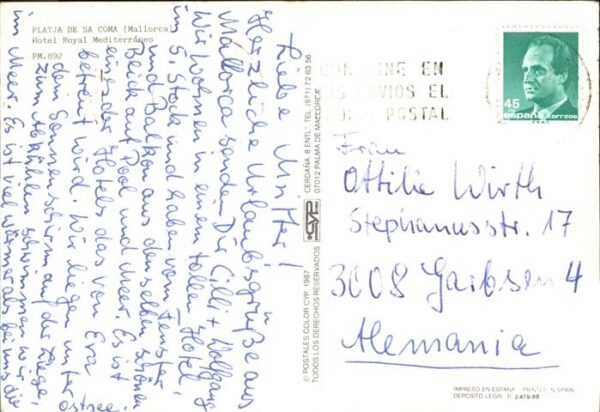 PLATJA DE SA COMA (Mallorca)
Hotel Royal Mediterráneo
PM.692
Liebe Mutter!
Herzliche Urlaubsgrüße aus
Mallorca senden Dir Cilli + Wolfgang
Wir wohnen in einem tollen Hotel,
im 5. Stock und haben vom Fenster
und Balkon aus denselben schönen
Blick auf Pool und Meer. Es ist
eines der Hotels, das von Eva
betreut wird. Wir liegen unter
dem Sonnenschirm auf der Liege,
zum Abkühlen schwimmen wir
im Meer. Es ist viel wärmer als bei uns die
Ostsee.
© POSTALES COLOR CYP, 1987
TODOS LOS DERECHOS RESERVADOS
CYP
CERDAÑA, 8 ENTL° TEL. (971) 72 63 56
07012 PALMA DE MALLORCA
EN
ENVIOS EL
POSTAL
45
españa correos
Frau
Ottilie Wirth
Stephanusstr. 17
3008 Garbsen 4
Alemania
IMPRESO EN ESPAÑA - PRINTED IN SPAIN
DEPOSITO LEGAL B. 2479 88